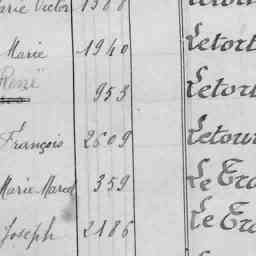 Marie Victor 1388
Marie 1940 Letort
René 953 Letour
François 2609 Letour
Marie-Marcel 359 Le Tra
Joseph 2186 Le Tra